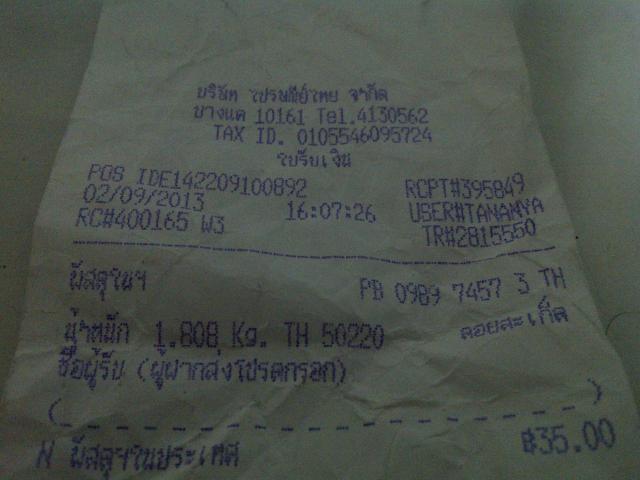 บริษัท ไปรษณีย์ไทย จำกัด
บางแค 10161 Tel.4130562
TAX ID. 0105546095724
ใบรับเงิน
POS IDE142209100892 RCPT#395849
02/09/2013 16:07:26 USER#TANANYA
RC#400165 W3 TR#2815550
พัสดุในฯ PB 0989 7457 3 TH
น้ำหนัก 1.808 Kg. TH 50220 ดอยสะเก็ด
ชื่อผู้รับ (ผู้ฝากส่งโปรดกรอก)
(_ _ _ _ _ _ _ _ _ _ _ _ _ _ _ _ _ _ _)
N พัสดุฯในประเทศ ฿35.00